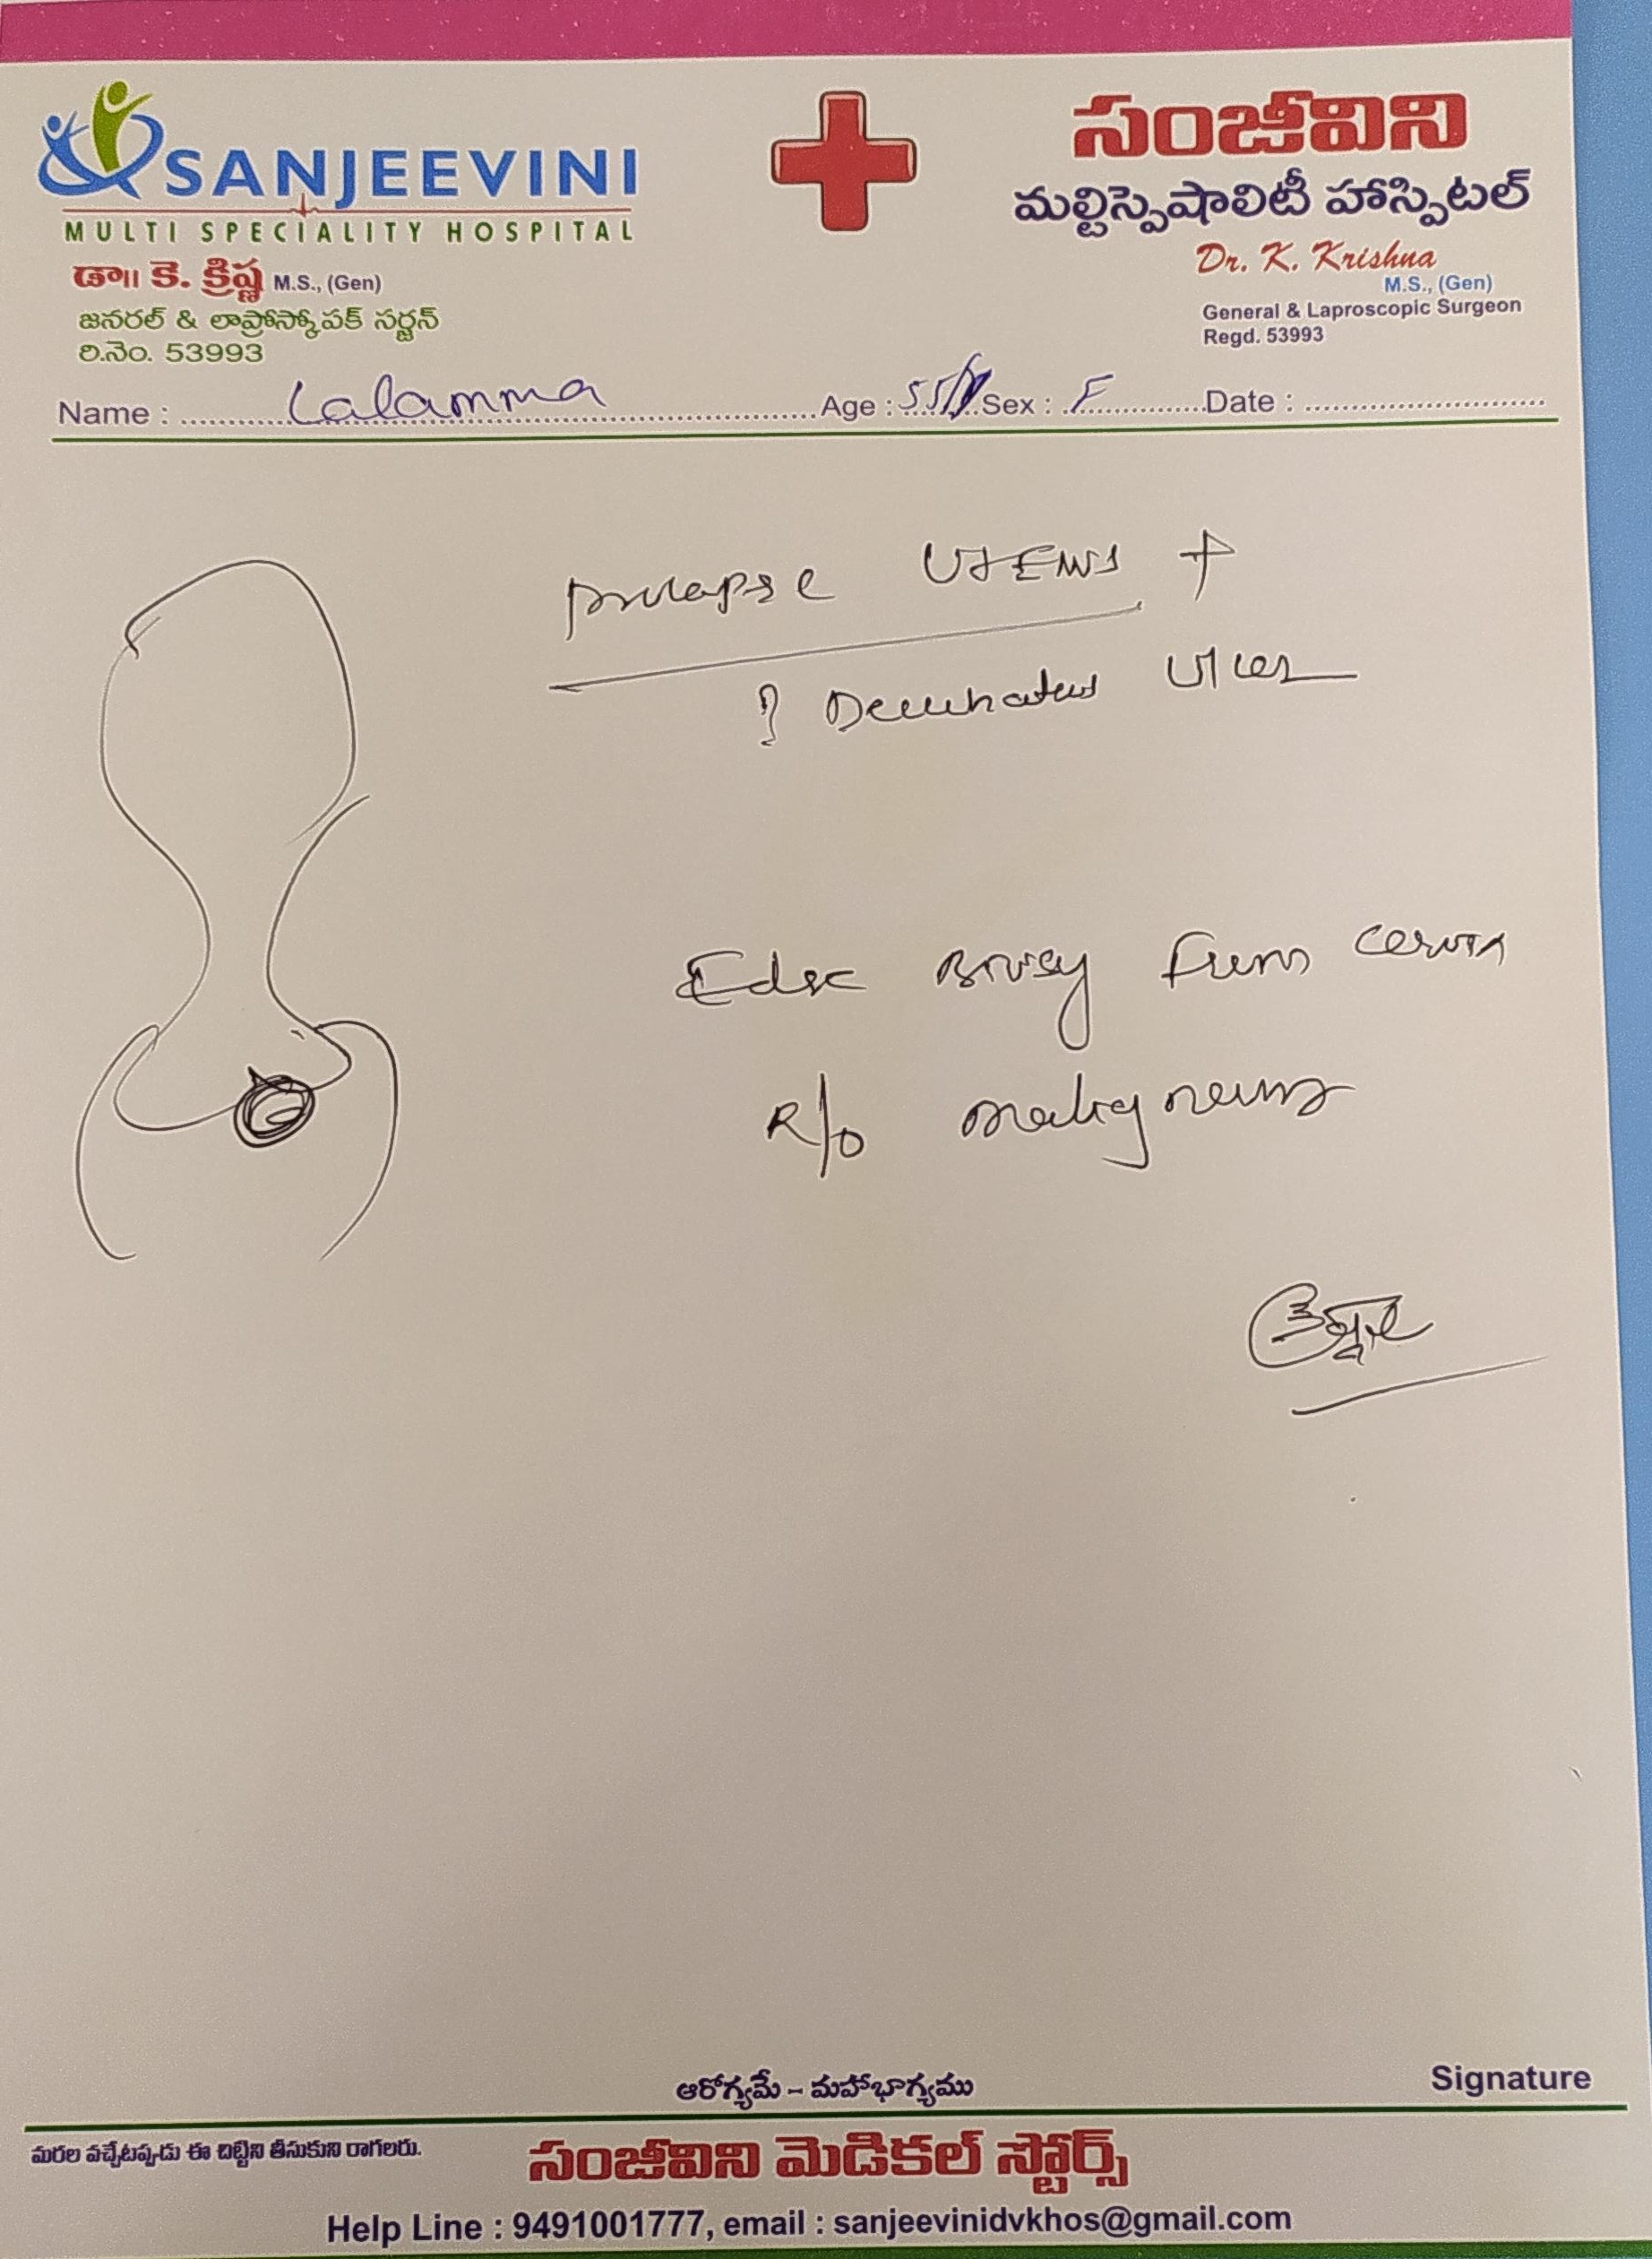 SANJEEVINI
MULTI SPECIALITY HOSPITAL
డా॥ కె. క్రిష్ణ M.S., (Gen)
జనరల్ & లాప్రోస్కోపక్ సర్జన్
రి.నెం. 53993
సంజీవిని
మల్టిస్పెషాలిటీ హాస్పిటల్
Dr. K. Krishna
M.S., (Gen)
General & Laproscopic Surgeon
Regd. 53993
Name : Lalamma Age : 55/ Sex : F Date :
prolapse Uterus +
? Decubitus Ulcer
Edge Biopsy from cervix
R/o malignancy
Signature
ఆరోగ్యమే – మహాభాగ్యము
మరల వచ్చేటప్పుడు ఈ చిట్టిని తీసుకుని రాగలరు.
సంజీవిని మెడికల్ స్టోర్స్
Help Line : 9491001777, email : sanjeevinidvkhos@gmail.com